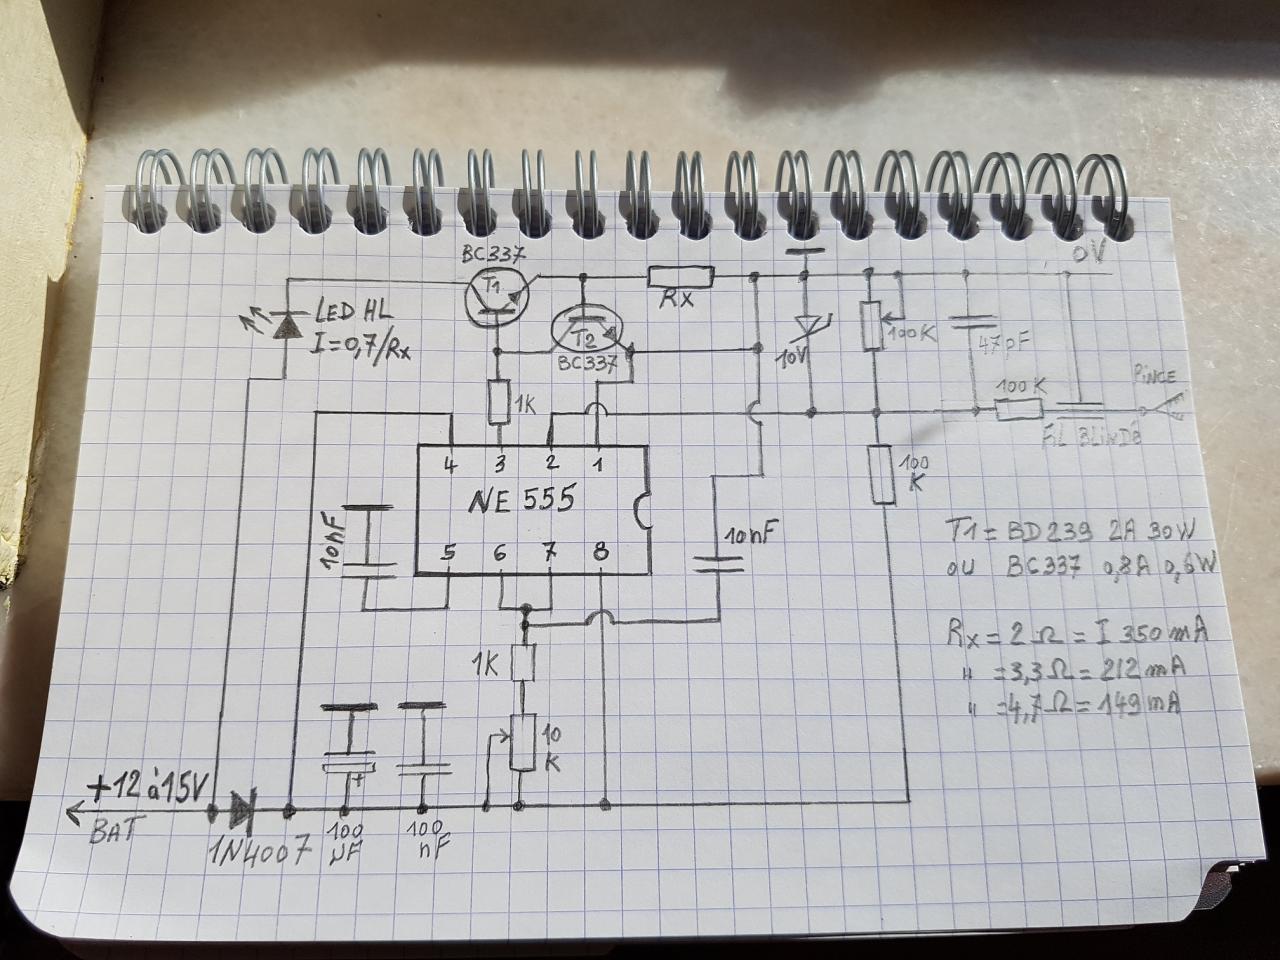 0V
BC337
T1
Rx
LED HL
I=0,7/Rx
T2
BC337
10V
100K
47pF
PINCE
1K
100K
FIL BLINDÉ
4 3 2 1
100
K
NE 555
10nF
10nF
T1= BD239 2A 30W
ou BC337 0,8A 0,6W
5 6 7 8
Rx = 2 Ω = I 350 mA
" = 3,3 Ω = 212 mA
" = 4,7 Ω = 149 mA
1K
10
K
+
+12 à 15V
BAT
1N4007
100
µF
100
nF